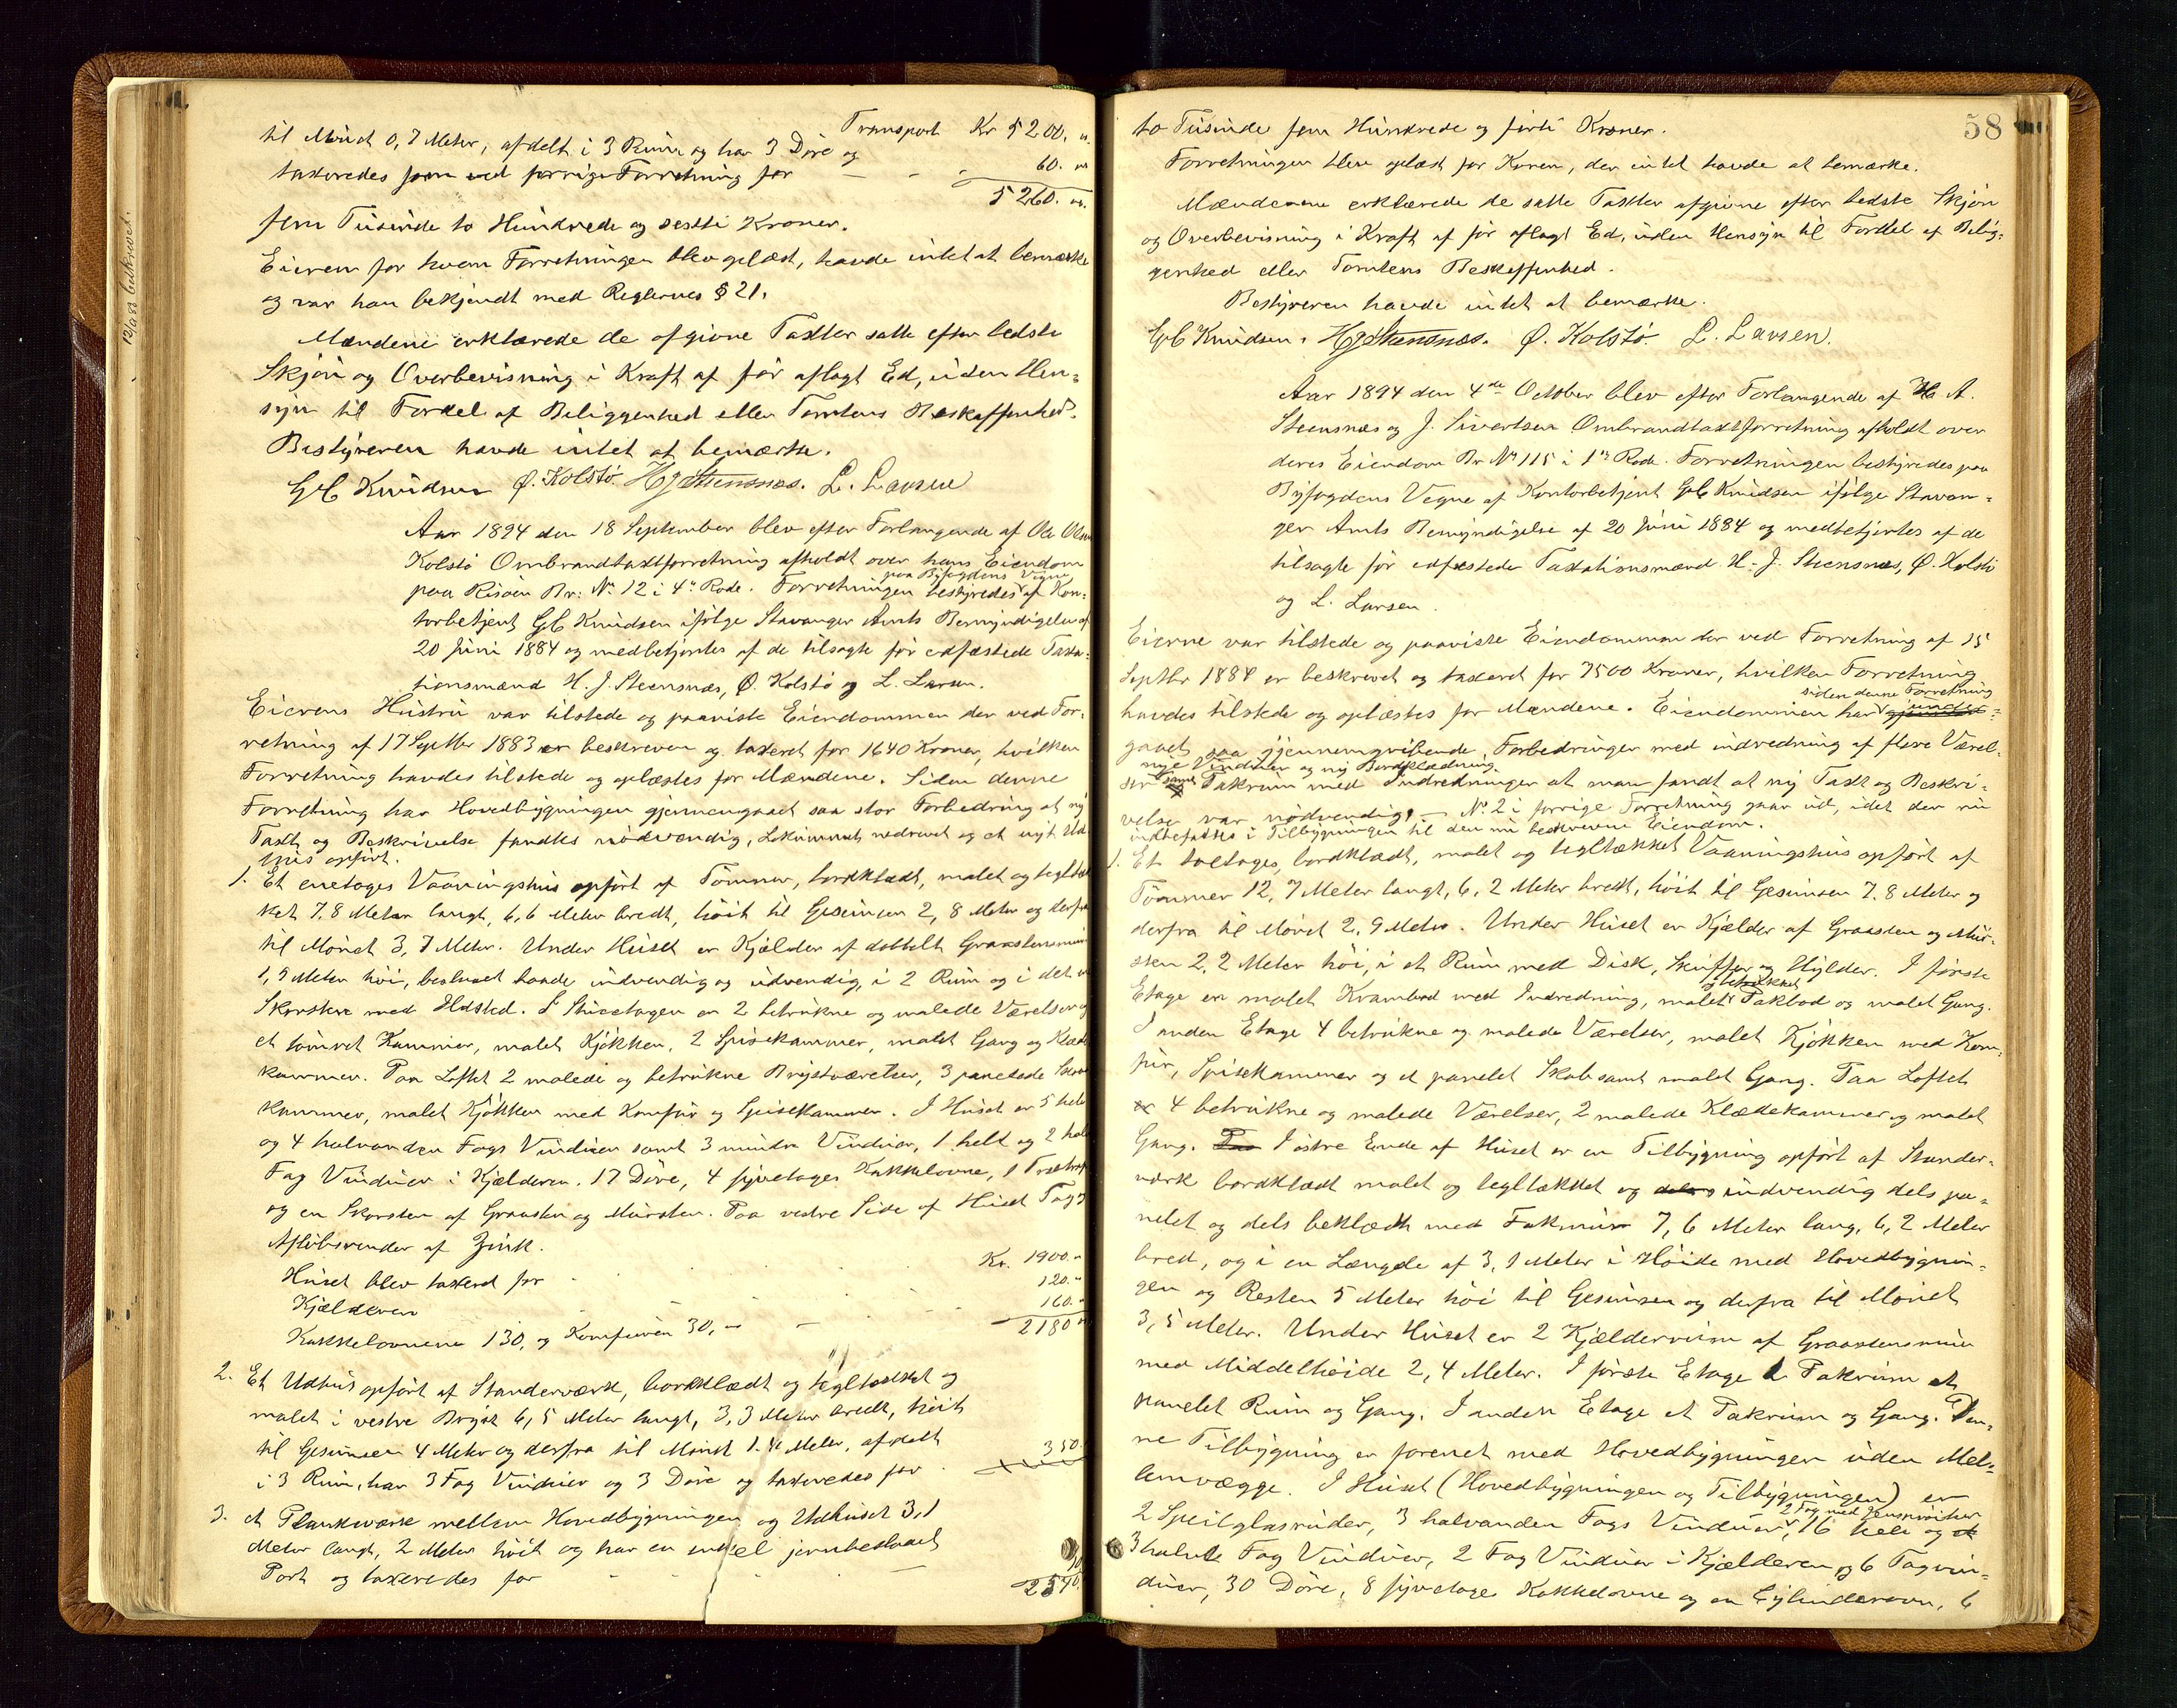 12/9 83 beskrevet.
Transport Kr 5200. "
til Mønet 0,7 Meter, afdelt i 3 Rum og har 3 Døre og
taxeredes som ved forrige Forretning for — - - 60. "
5260. "
fem Tusinde to Hundrede og sexti Kroner.
Eieren for hvem Forretningen blev oplæst, havde intet at bemærke
og var han bekjendt med Reglernes § 21.
Mændene erklærede de afgivne Taxter satte efter bedste
Skjøn og Overbevisning i Kraft af før aflagt Ed, uden Hen-
syn til Fordel af Beliggenhed eller Tomtens Beskaffenhed.
Bestyreren havde intet at bemærke.
GC Knudsen Ø. Kolstø HJSteensnæs. L. Larsen
Aar 1894 den 18 September blev efter Forlangende af Ole Olsen
Kolstø Ombrandtaxtforretning afholdt over hans Eiendom
paa Byfogdens Vegne
paa Risøen Br: No 12 i 4de Rode. Forretningen bestyredes af Kon-
torbetjent GC Knudsen ifølge Stavanger Amts Bemyndigelse af
20 Juni 1884 og medbetjentes af de tilsagte før edfæstede Taxa-
tionsmænd H. J. Steensnæs, Ø. Kolstø og L. Larsen.
Eierens Hustru var tilstede og paaviste Eiendommen der ved For-
retning af 17 Septbr 1883 er beskreven og taxeret for 1640 Kroner, hvilken
Forretning havdes tilstede og oplæstes for Mændene. Siden denne
Forretning har Hovedbygningen gjennemgaaet saa stor Forbedring at ny
Taxt og Beskrivelse fandtes nødvendig, Lokummet nedrevet og et nyt Ud
hus opført.
1. Et enetages Vaaningshus opført af Tømmer, bordklædt, malet og tegltæk
ket 7.8 Meter langt, 6,6 Meter bredt, høit til Gesimsen 2,8 Meter og derfra
til Mønet 3,7 Meter. Under Huset er Kjælder af dobbelt Graastensmur
1,9 Meter høi, beslaaet baade indvendig og udvendig, i 2 Rum og i det
Skorsten med Ildsted. I Stueetagen er 2 betrukne og malede Værelser og
et tømret Kammer, malet Kjøkken, 2 Spisekammer, malet Gang og Klæde
kammer. Paa Loftet 2 malede og betrukne Brystværelser, 3 panelede
kammer, malet Kjøkken med Komfur og Spisekammer. I Huset er 5 hele
og 4 halvanden Fags Vinduer samt 3 mindre Vinduer, 1 helt og 2 halve
Fag Vinduer i Kjælderen. 17 Døre, 4 fyretages Kakkelovne, 1
og en Skorsten af Graasten og Mursten. Paa vestre Side af Huset
Afløbsrender af Zink.
Huset blev taxeret for Kr. 1900. "
Kjælderen - - - 120. "
Kakkelovnene 130, og Komfuren 30, — — 160. "
2180 "
2. Et Udhus opført af Standerværk, bordklædt og tegltækket og
malet i vestre Bryst 6,5 Meter langt, 3,3 Meter bredt, høit
til Gesimsen 4 Meter og derfra til Mønet 1.4 Meter, afdelt
i 3 Rum, har 3 Fag Vinduer og 3 Døre og taxeredes for 350.
3. et Plankeværk mellem Hovedbygningen og Udhuset 3,1
Meter langt, 2 Meter høit og har en jernbeslaaet
Port og taxeredes for - - - 10
2540.
58
to Tusinde fem Hundrede og førti Kroner.
Forretningen blev oplæst for Konen, der intet havde at bemærke.
Mændene erklærede de satte Taxter afgivne efter bedste Skjøn
og Overbevisning i Kraft af før aflagt Ed, uden Hensyn til Fordel af Belig-
genhed eller Tomtens Beskaffenhed.
Bestyreren havde intet at bemærke.
GC Knudsen. HJSteensnæs. Ø. Kolstø. L. Larsen.
Aar 1894 den 4de October blev efter Forlangende af A.
Steensnæs og J. Sivertsen Ombrandtaxtforretning afholdt over
deres Eiendom Br No 115 i 1ste Rode. Forretningen bestyredes paa
Byfogdens Vegne af Kontorbetjent GC Knudsen ifølge Stavan-
ger Amts Bemyndigelse af 20 Juni 1884 og medbetjentes af de
tilsagte før edfæstede Taxationsmænd H. J. Steensnæs, Ø. Kolstø
og L. Larsen.
Eierne var tilstede og paaviste Eiendommen der ved Forretning af 15
Septbr 1884 er beskrevet og taxeret for 7500 Kroner, hvilken Forretning
siden denne Forretning
havdes tilstede og oplæstes for Mændene. Eiendommen har under-
gaaet saa gjennemgribende Forbedringer med indredning af flere Værel-
nye Vinduer og ny Bordklædning
ser samt Pakrum med Indredninger at man fandt at ny Taxt og Beskri-
velse var nødvendig. — No 2 i forrige Forretning gaar ud, idet den nu
indbefattes i Tilbygningen til den nu beskrevne Eiendom.
1. Et toetages, bordklædt, malet og tegltækket Vaaningshus opført af
Tømmer 12,7 Meter langt, 6,2 Meter bredt, høit til Gesimsen 7.8 Meter og
derfra til Mønet 2,9 Meter. Under Huset er Kjælder af Graasten og Mur-
sten 2,2 Meter høi, i et Rum med Disk, Skuffer og Hylder. I første
og betrukket
Etage en malet Krambod med Indredning, malet Pakbod og malet Gang.
I anden Etage 4 betrukne og malede Værelser, malet Kjøkken med Kom-
fur, Spisekammer og et panelet Skab samt malet Gang. Paa Loftet
er 4 betrukne og malede Værelser, 2 malede Klædekammer og malet
Gang. Paa I østre Ende af Huset er en Tilbygning opført af Stander-
værk bordklædt malet og tegltækket og dels indvendig dels pa-
nelet og dels beklædt med Fakmur 7,6 Meter lang, 6,2 Meter
bred, og i en Længde af 3,1 Meter i Høide med Hovedbygnin-
gen og Resten 5 Meter høi til Gesimsen og derfra til Mønet
3,5 Meter. Under Huset er 2 Kjælderrum af Graastensmur
med Middelhøide 2,4 Meter. I første Etage 1 Pakrum et
panelet Rum og Gang. I anden Etage et Pakrum og Gang. Den-
ne Tilbygning er forenet med Hovedbygningen uden Mel-
lemvægge. I Huset (Hovedbygningen og Tilbygningen) er
2 Fag med
2 Speilglasruder, 3 halvanden Fags Vinduer, 16 hele og
3 halve Fag Vinduer, 2 Fag Vinduer i Kjælderen og 6 Tagvin-
duer, 30 Døre, 8 fyretage Kakkelovne og en Cylinderovn, 6